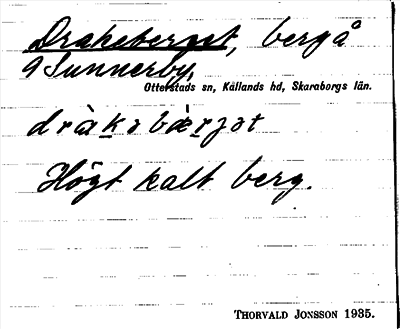 Drakeberget, berg å
Sunnerby,
Otterstads sn, Kållands hd, Skaraborgs län.
dràkəbæ̀rjət
Högt kalt berg.
THORVALD JONSSON 1935.